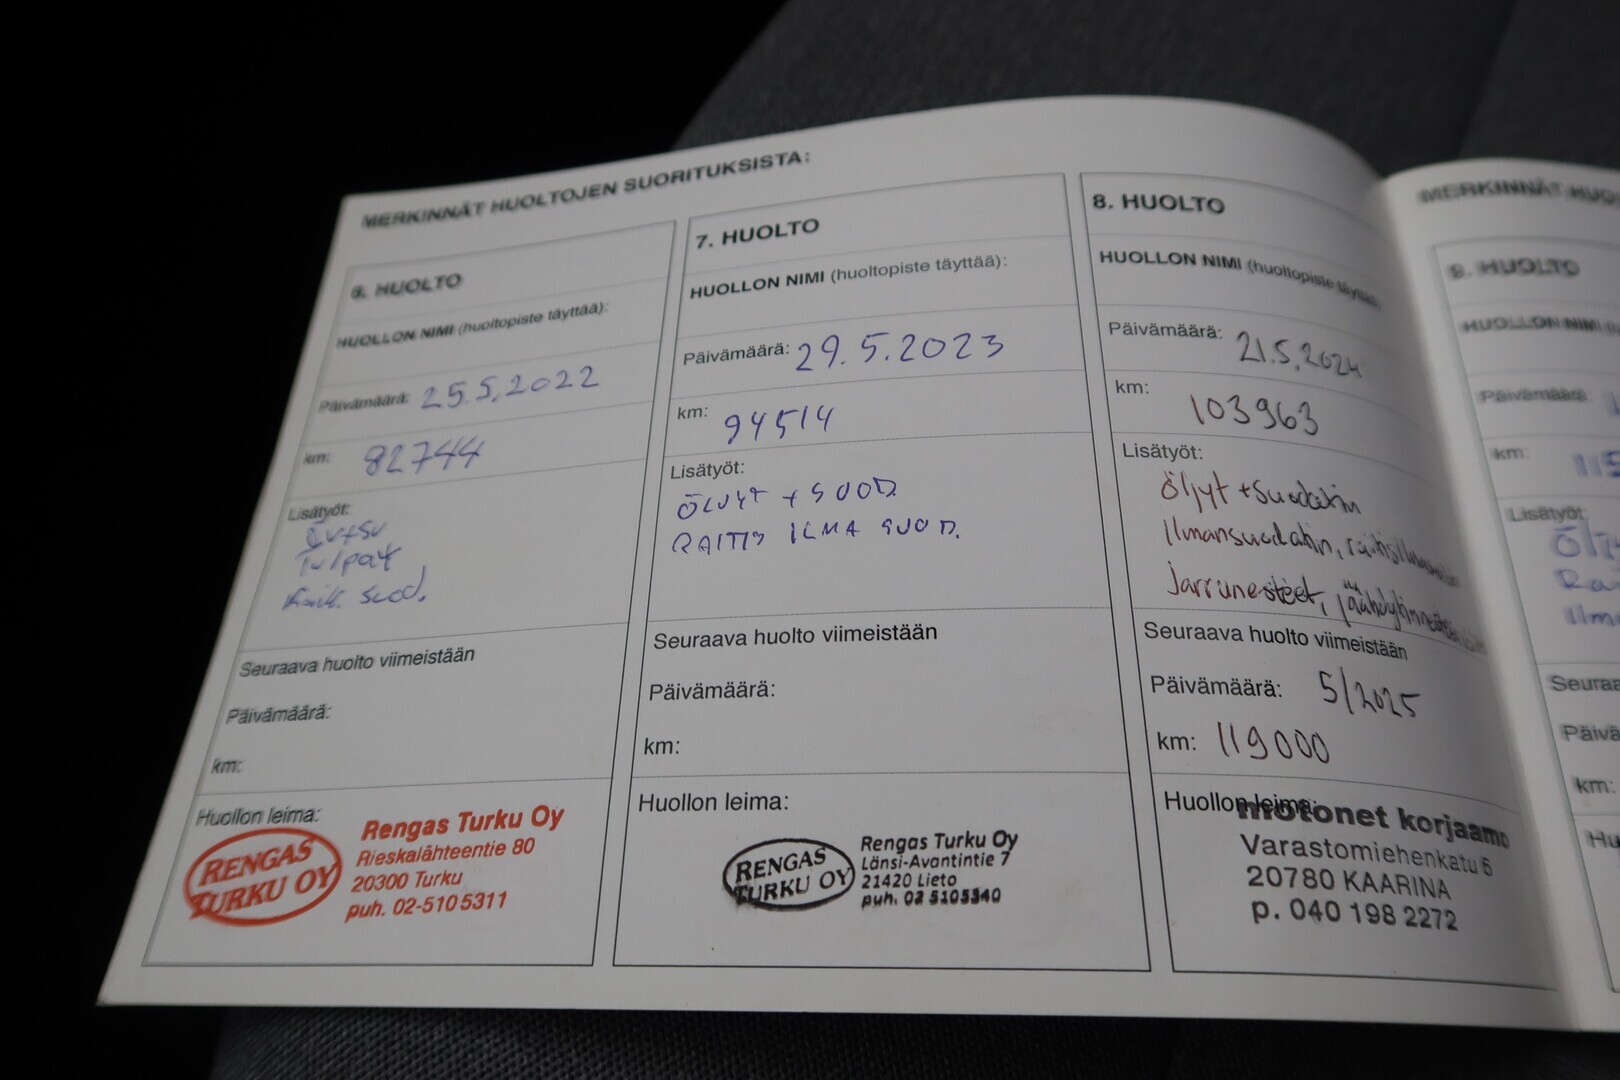 MERKINNÄT HUOLTOJEN SUORITUKSISTA:
6. HUOLTO
HUOLLON NIMI (huoltopiste täyttää):
Päivämäärä: 25.5.2022
km: 82744
Lisätyöt:
Tulpat
suod.
Seuraava huolto viimeistään
Päivämäärä:
km:
Huollon leima:
RENGAS
TURKU OY
Rengas Turku Oy
Rieskalähteentie 80
20300 Turku
puh. 02-510 5311
7. HUOLTO
HUOLLON NIMI (huoltopiste täyttää):
Päivämäärä: 29.5.2023
km: 94514
Lisätyöt:
ÖLJYT + SUOD.
RAITIS ILMA SUOD.
Seuraava huolto viimeistään
Päivämäärä:
km:
Huollon leima:
RENGAS
TURKU OY
Rengas Turku Oy
Länsi-Avantintie 7
21420 Lieto
puh. 02 5105340
8. HUOLTO
HUOLLON NIMI (huoltopiste täyttää)
Päivämäärä: 21.5.2024
km: 103963
Lisätyöt:
Öljyt + suodatin
Ilmansuodatin,
Jarrunesteet,
Seuraava huolto viimeistään
Päivämäärä: 5/2025
km: 119000
Huollon leima:
motonet korjaamo
Varastomiehenkatu 6
20780 KAARINA
p. 040 198 2272
MERKINNÄT HUO
9. HUOLTO
HUOLLON NIMI
Päivämäärä:
km: 115
Lisätyöt:
Seuraa
Päivä
km:
Hu